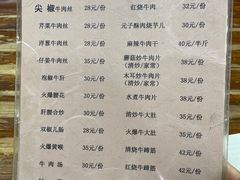 尖椒牛肉丝 28元/份
芹菜牛肉丝 28元/份
洋葱牛肉丝 28元/份
仔姜牛肉丝 35元/份
泡椒牛肝 30元/份
火爆腰花 30元/份
肝腰合炒 30元/份
双椒牛肠 28元/份
火爆黄喉 35元/份
牛肉汤 30元/份
红烧牛肉 32元/份
元子酥肉烧芋儿 30元/份
麻辣牛肉干 40元/半斤
蘑菇炒牛肉片 (清炒/家常) 38元/份
木耳炒牛肉片 (清炒/家常) 38元/份
水煮牛肉片 38元/份
清炒牛大肚 35元/份
火爆牛大肚 35元/份
清烧牛蹄筋 42元/份
红烧牛蹄筋 42元/份